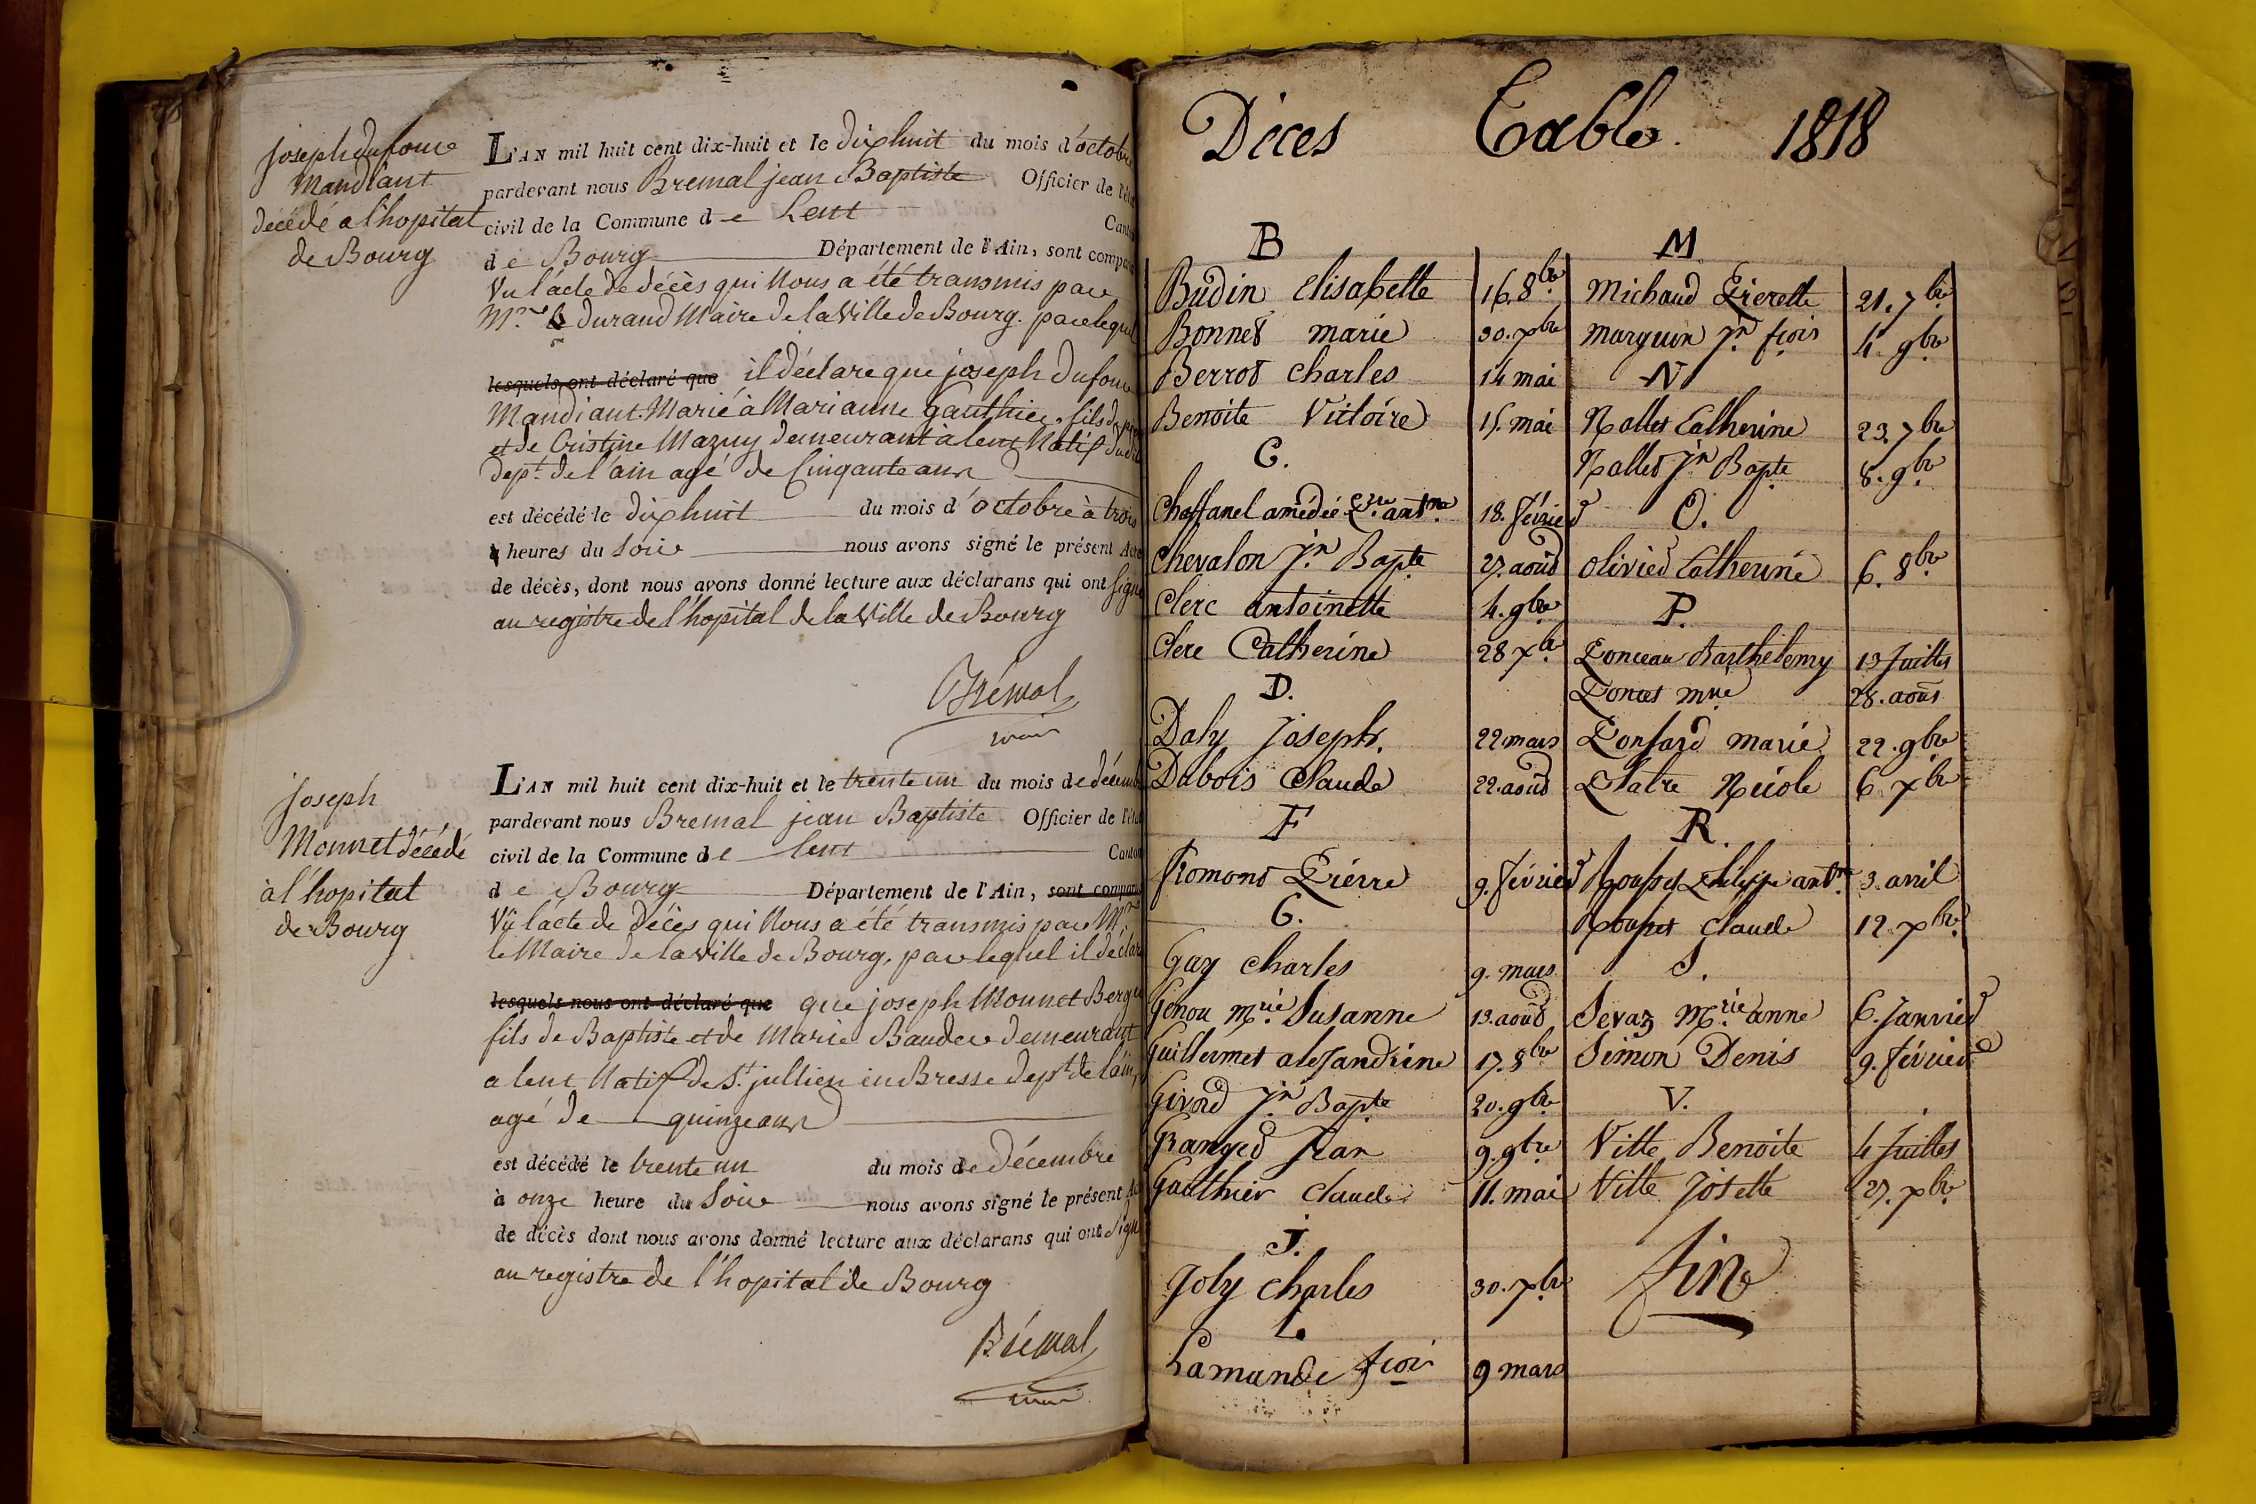 Joseph dufour
Mandiant
décédé a l'hopital
de Bourg
L'AN mil huit cent dix-huit et le dixhuit du mois d'octobre
pardevant nous Bremal jean Baptiste Officier de l'état
civil de la Commune de Lent Canton
de Bourg Département de l'Ain, sont comparus
Vu l'acte de décès qui Nous a été transmis par
Mr. durand Maire de la Ville de Bourg. par lequel
lesquels ont déclaré que il déclare que joseph Dufour
Mandiant. Marié à Marianne Gauthier, fils de
et de Cristine Mazuy demeurant à lent Natif dudit
dept. de l'ain agé de Cinquante ans
est décédé le dixhuit du mois d'octobre à trois
heures du Soir nous avons signé le présent Acte
de décès, dont nous avons donné lecture aux déclarans qui ont Signé
au registre de l'hopital de la Ville de Bourg
Brémal
maire
joseph
Monnet décédé
à l'hopital
de Bourg
L'AN mil huit cent dix-huit et le trente un du mois de décembre
pardevant nous Bremal jean Baptiste Officier de l'état
civil de la Commune de lent Canton
de Bourg Département de l'Ain, sont comparus
Vû l'acte de Décès qui Nous a été transmis par Mr
le Maire de la Ville de Bourg, par lequel il déclare
lesquels nous ont déclaré que que joseph Monnet Berger
fils de Baptiste et de Marie Bauder demeurant
a lent Natif de St. jullien en Bresse dept. de l'ain,
agé de quinze ans
est décédé le trente un du mois de Décembre
à onze heure du Soir nous avons signé le présent Acte
de décès dont nous avons donné lecture aux déclarans qui ont Signé
au registre de l'hopital de Bourg
Brémal
maire
Déces Table 1818
B
Budin Elisabette 16. 8bre
Bonnet marie 30. xbre
Berrod Charles 14 mai
Benoite Victoire 15. mai
C.
Chaffanel amédée antne 18. février
Chevalon Jn. Bapte 27. aoud
Clerc antoinette 4. 9bre
Clerc Catherine 28 xbre
D.
Daly Joseph. 22 mars
Dubois Claude 22. aoud
F
Fromont Pierre 9. février
G.
Gay Charles 9. mars
Genou Mrie Susanne 13. aoud
Guillermet alexandrine 17. 8bre
Girord Jn. Bapte 20. 9bre
Granged Jean 9. 9bre
Gauthier Claude 11. mai
J.
Joly Charles 30. xbre
L.
Lamande fcois 9 mars
M
Michaud Pierette 21. 7bre
Marguin Jn. fcois 4. 9bre
N
Nallet Catherine 23. 7bre
Nallet Jn Bapte 8. 9bre
O.
Olivied Catherine 6. 8bre
P.
Ponceau Barthelemy 13 Juillet
Poncet mrie 28. aout
Ponsard marie 22. 9bre
Platre Nicole 6 xbre
R.
Philippe antne. 3. avril
Claude 12. xbre
S.
Sevaz Mrie anne 6. Janvier
Simon Denis 9. février
V.
Ville Benoite 4 Juillet
Ville Josette 27. xbre
fin